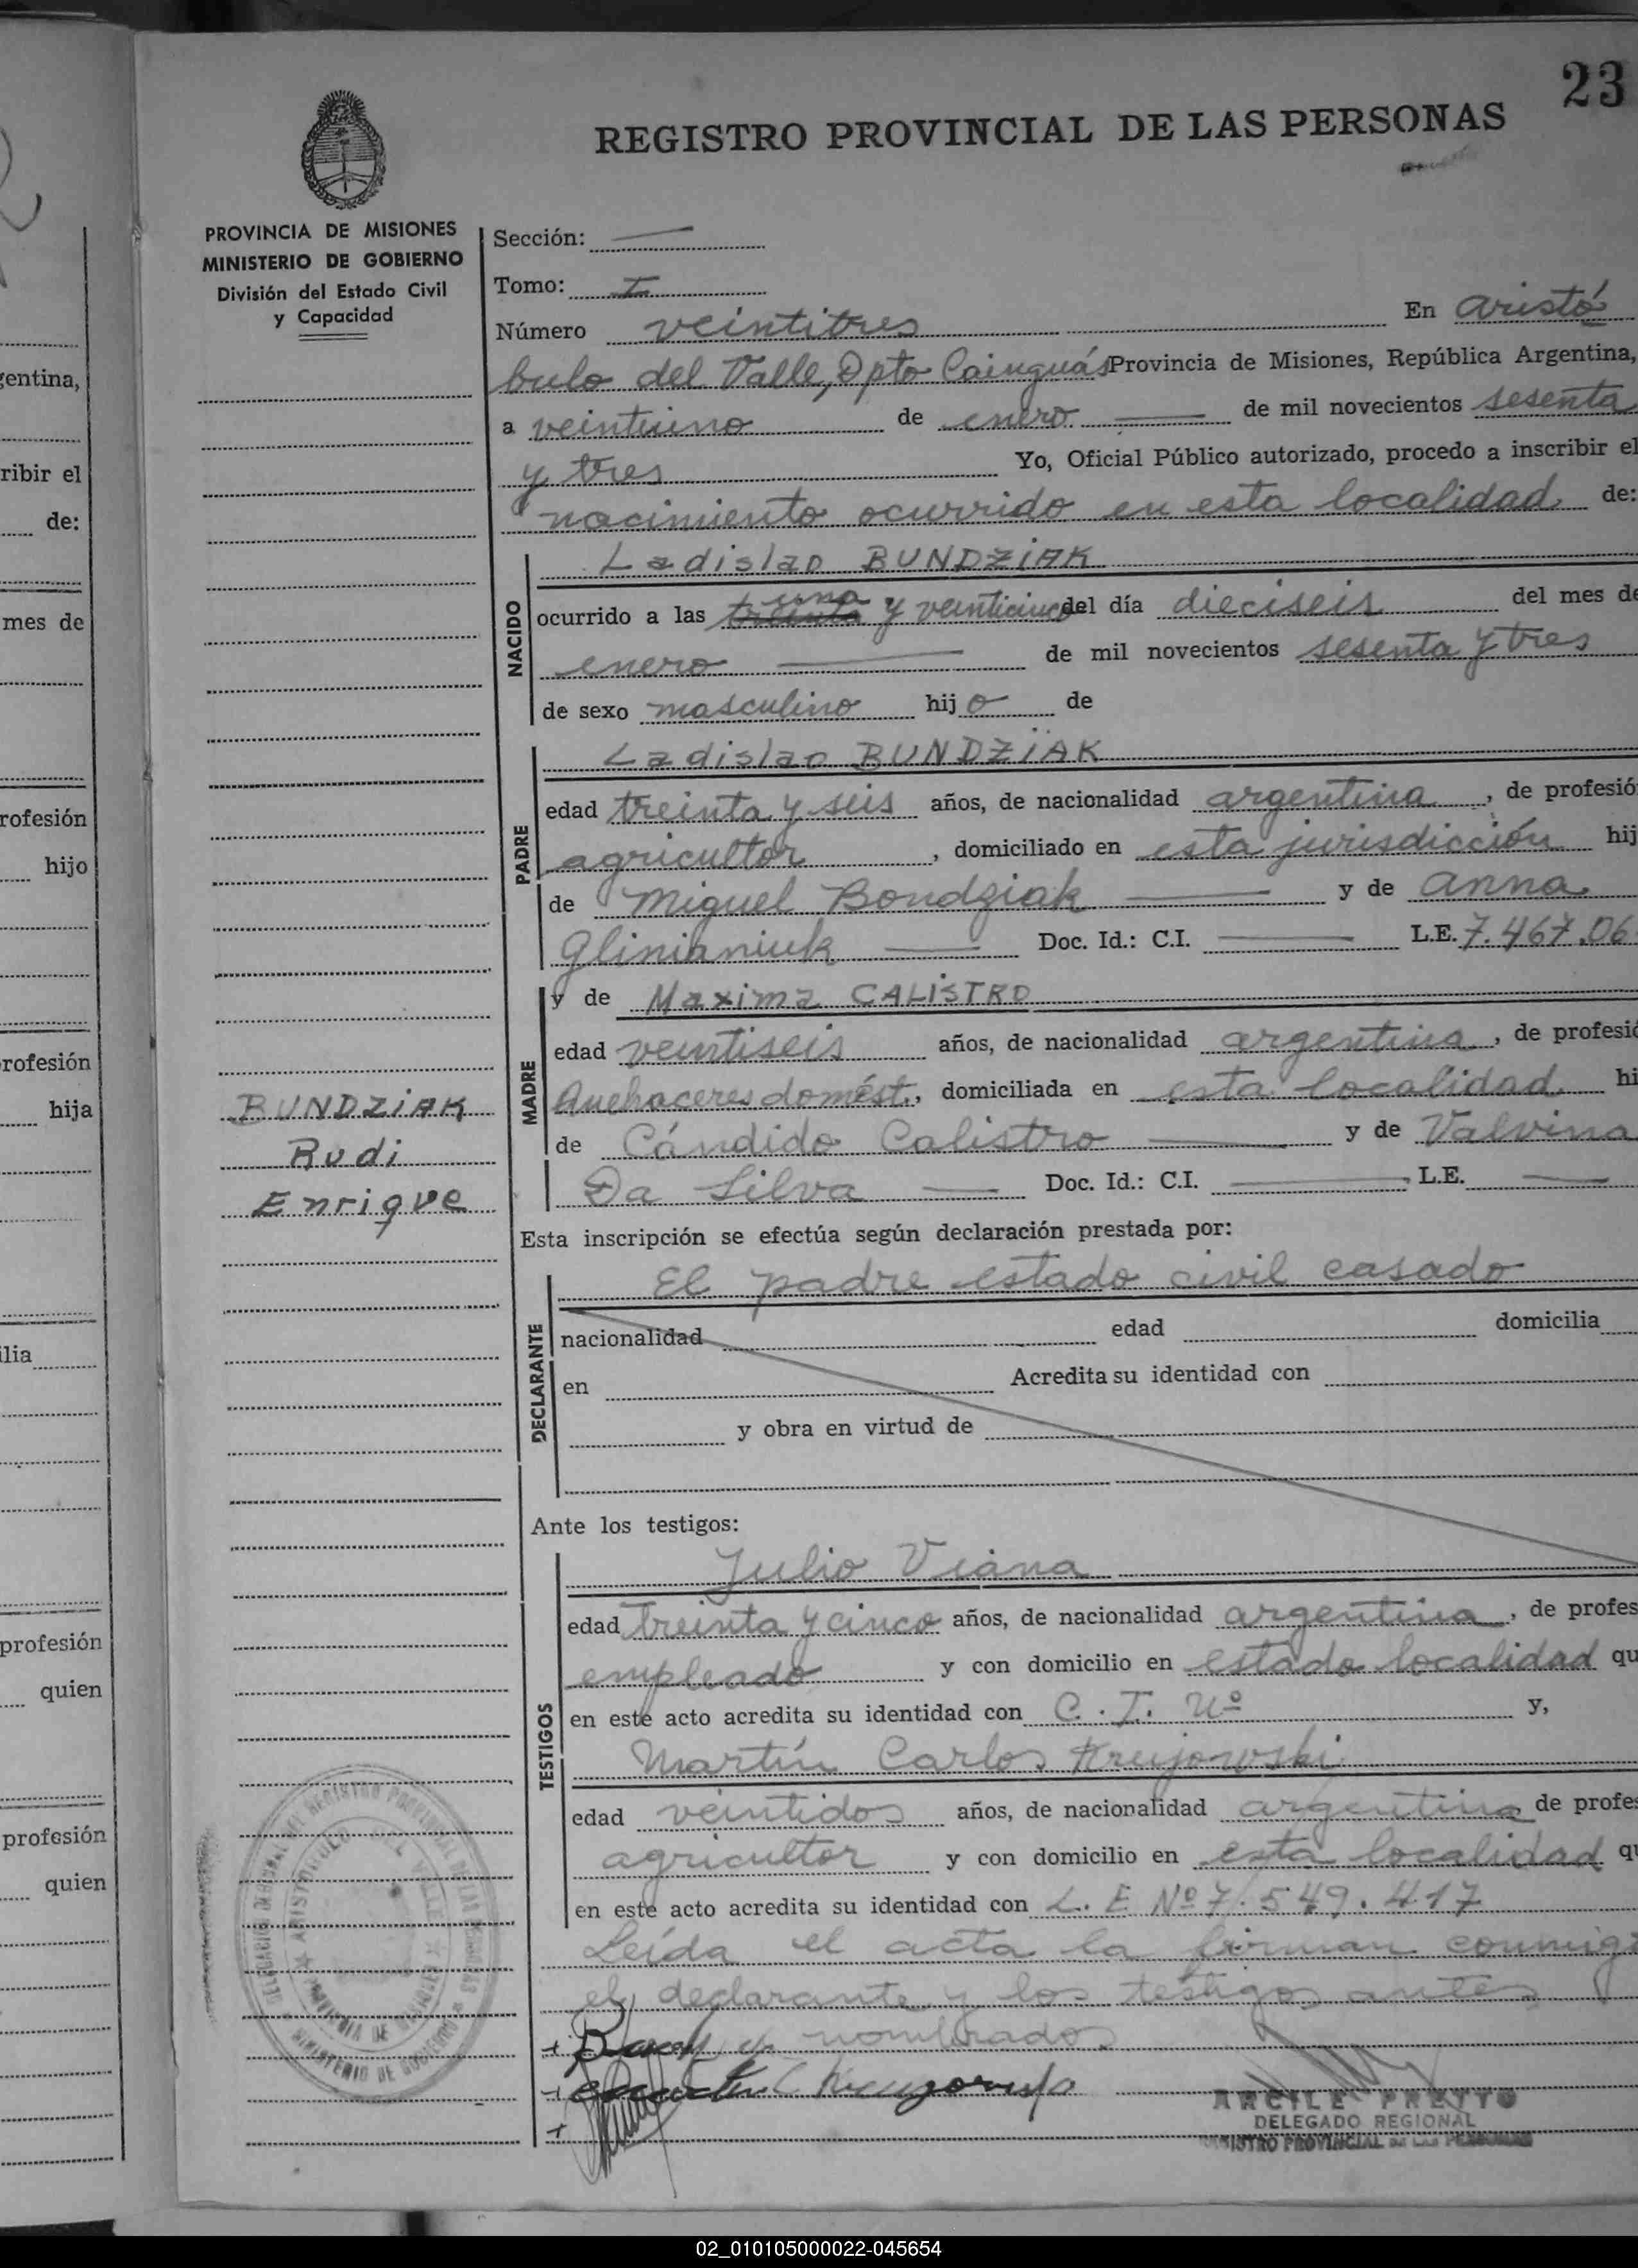 23
REGISTRO PROVINCIAL DE LAS PERSONAS
PROVINCIA DE MISIONES
MINISTERIO DE GOBIERNO
División del Estado Civil
y Capacidad
Sección:
Tomo: I
Número veintitres En Aristó
bulo del Valle, Dpto Cainguás Provincia de Misiones, República Argentina,
a veintiuno de enero de mil novecientos sesenta
y tres Yo, Oficial Público autorizado, procedo a inscribir el
nacimiento ocurrido en esta localidad de:
NACIDO
Ladislao BUNDZiAK
una
ocurrido a las treinta y veinticinco del día dieciseis del mes de
enero de mil novecientos sesenta y tres
de sexo masculino hijo de
PADRE
Ladislao BUNDZiAK
edad treinta y seis años, de nacionalidad argentina, de profesió
agricultor, domiciliado en esta jurisdicción hij
de Miguel Bondziak y de Anna
Glinianiuk Doc. Id.: C.I. L.E. 7.467.06
MADRE
y de Maxima CALiSTRO
edad veintiseis años, de nacionalidad argentina, de profesió
Quehaceres domést., domiciliada en esta localidad hi
de Cándido Calistro y de Valvina
Da Silva Doc. Id.: C.I. L.E.
BUNDZiAK
Rudi
Enrique
Esta inscripción se efectúa según declaración prestada por:
DECLARANTE
El padre estado civil casado
nacionalidad edad domicilia
en Acredita su identidad con
y obra en virtud de
Ante los testigos:
TESTIGOS
Julio Viana
edad treinta y cinco años, de nacionalidad argentina, de profes
empleado y con domicilio en estado localidad qu
en este acto acredita su identidad con C.I. Nº y,
Martín Carlos
edad veintidos años, de nacionalidad argentina de profes
agricultor y con domicilio en esta localidad qu
en este acto acredita su identidad con L.E Nº 7.549.417
Leída el acta la firman conmigo
el declarante y los testigos antes
nombrados
ARCILE PREYTO
DELEGADO REGIONAL
REGISTRO PROVINCIAL DE LAS PERSONAS
gentina,
ribir el
de:
mes de
rofesión
hijo
rofesión
hija
ilia
profesión
quien
profesión
quien
02_010105000022-045654